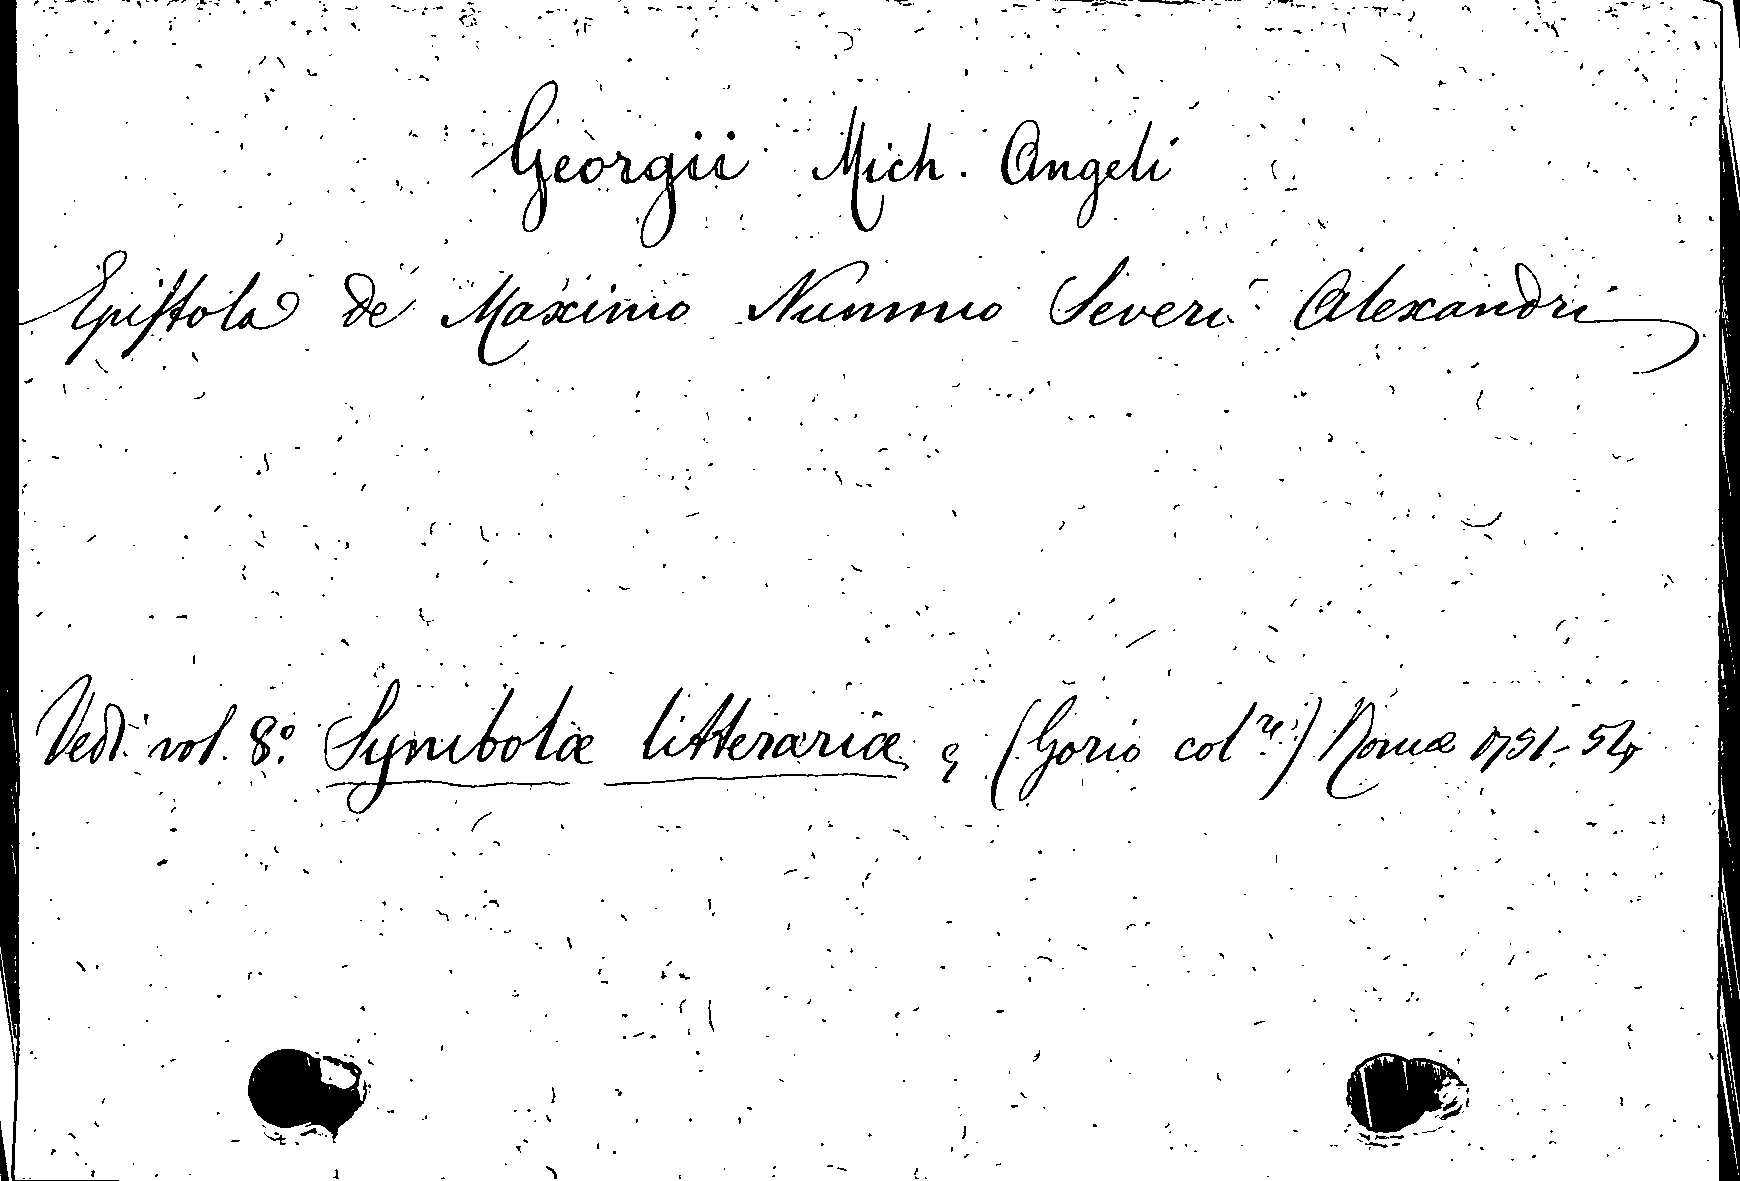 Georgii Mich. Angeli
Epistola de Maximo Nummo Severi Alexandri
Vedi vol. 8.° Symbolæ litterariæ, (Gorio col.re) Romæ 1751-54